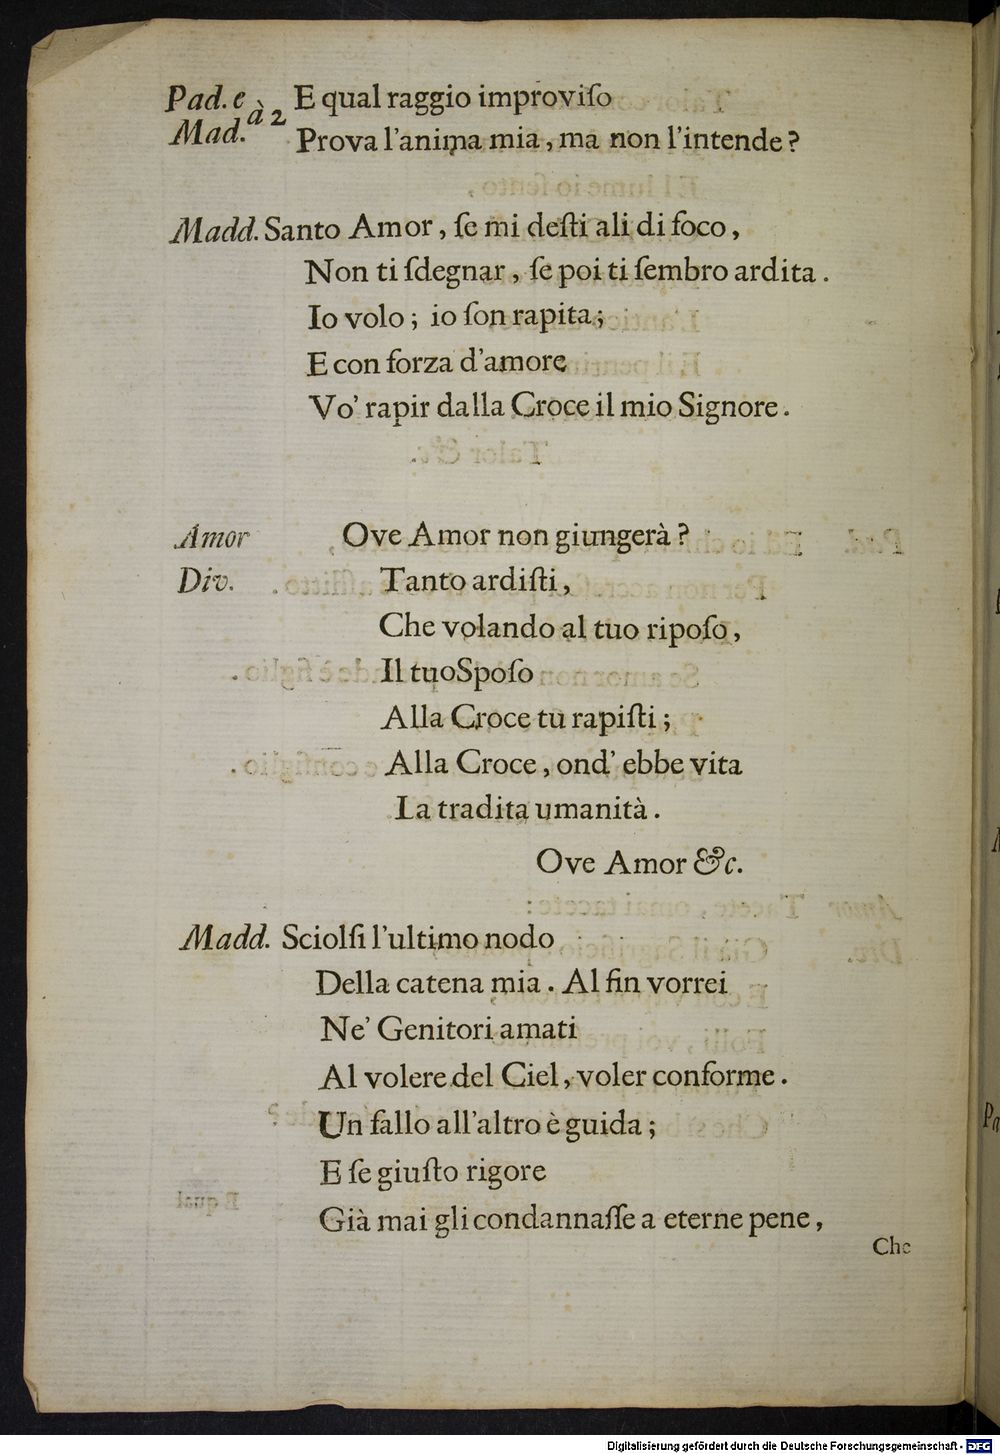 Pad. e à 2 E qual raggio improviſo
Mad. Prova l'anima mia, ma non l'intende?
Madd. Santo Amor, ſe mi deſti ali di foco,
Non ti ſdegnar, ſe poi ti ſembro ardita.
Io volo; io ſon rapita;
E con forza d'amore
Vo' rapir dalla Croce il mio Signore.
Amor Ove Amor non giungerà?
Div. Tanto ardiſti,
Che volando al tuo ripoſo,
Il tuoSpoſo
Alla Croce tu rapiſti;
Alla Croce, ond' ebbe vita
La tradita umanità.
Ove Amor &c.
Madd. Sciolſi l'ultimo nodo
Della catena mia. Al fin vorrei
Ne' Genitori amati
Al volere del Ciel, voler conforme.
Un fallo all'altro è guida;
E ſe giuſto rigore
Già mai gli condannaſſe a eterne pene,
Che
Digitalisierung gefördert durch die Deutsche Forschungsgemeinschaft - DFG